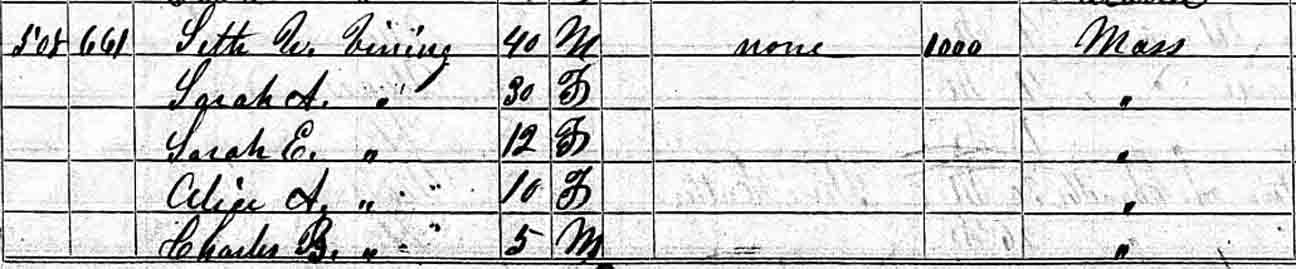 508 661 Seth W. Vining 40 M none 1000 Mass
Sarah A. " 30 F "
Sarah E. " 12 F "
Alice A. " 10 F "
Charles B. " 5 M "